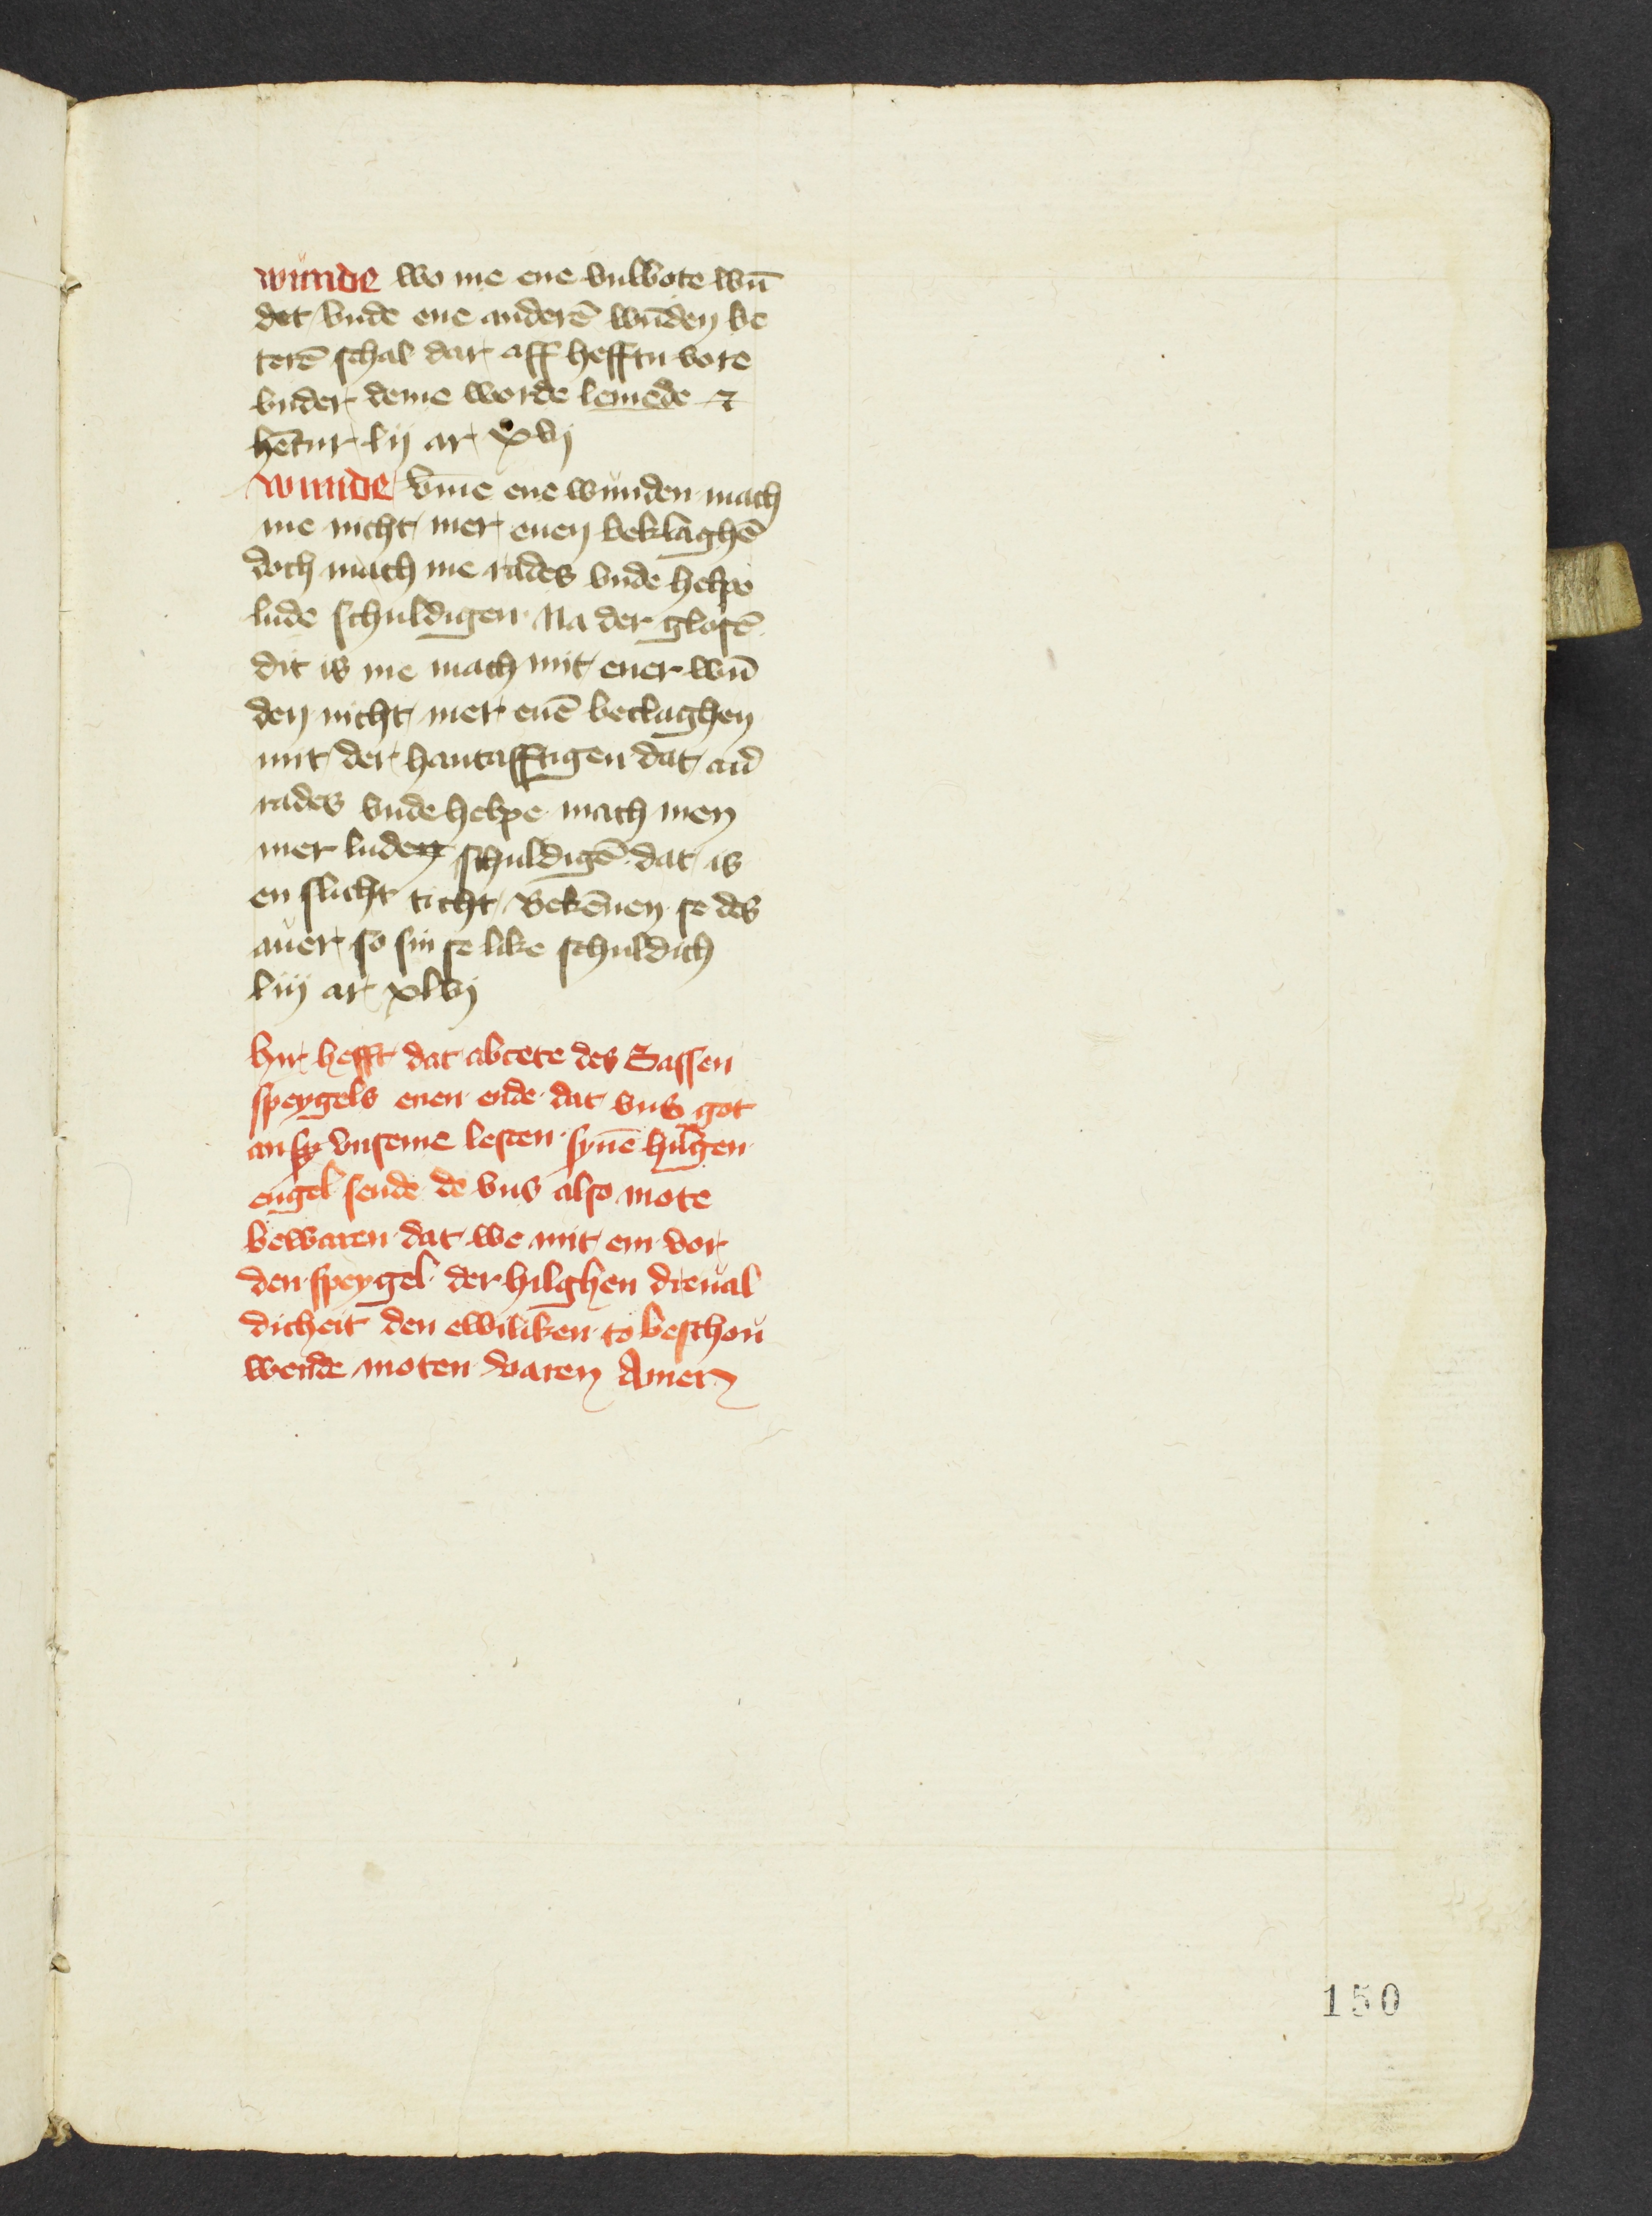 wunde wo me ene vulbote wū
det vnde ene anderē wūden be
terē schal dar aff hefftu vore
vnder deme worde lemede ⁊
hētur lij ar xvj
wunde vm̄e ene wunden mach
me nicht mer enen beklaghē
doch mach me rades vnde helpe
lude schuldigen Na der glosē
dit is me mach mit ener wū
den nicht mer enē beclaghen
mit der hantafftigen dat auer
rades vnde helpe mach men
mer luden schuldigē dat is
en slicht ticht Bekēnen se des
auer so sin se like schuldich
liij ar xlvj
hir hefft dat abcete des Sassen
speygels enen ende dat vns got
an sy vnseme lesten synē hilgen
engel sende de vns also mote
bewaren dat we mit em vor
den speygel der hilghen dreual
dicheit den ewiliken to beschou
wende moten varen Amen
150